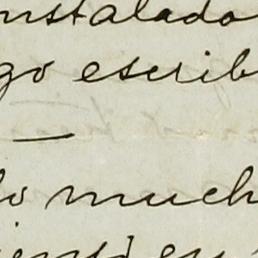 instalado
go escrib
—
lo much